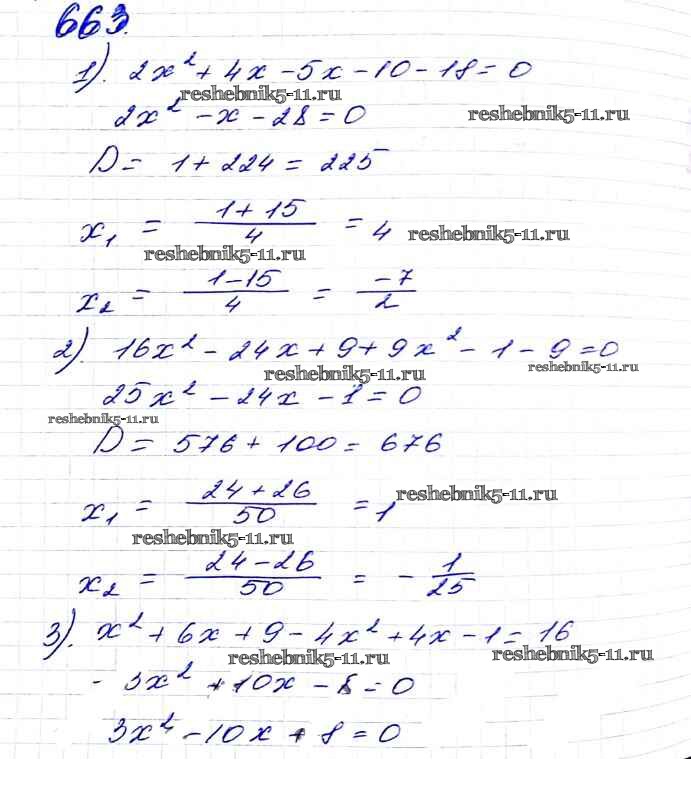 663.
1). 2x² + 4x - 5x - 10 - 18 = 0
reshebnik5-11.ru
2x² - x - 28 = 0 reshebnik5-11.ru
D = 1 + 224 = 225
x₁ = (1 + 15)/4 = 4 reshebnik5-11.ru
reshebnik5-11.ru
x₂ = (1 - 15)/4 = (-7)/2
2). 16x² - 24x + 9 + 9x² - 1 - 9 = 0
reshebnik5-11.ru reshebnik5-11.ru
25x² - 24x - 1 = 0
reshebnik5-11.ru
D = 576 + 100 = 676
x₁ = (24 + 26)/50 = 1 reshebnik5-11.ru
reshebnik5-11.ru
x₂ = (24 - 26)/50 = - 1/25
3). x² + 6x + 9 - 4x² + 4x - 1 = 16
reshebnik5-11.ru reshebnik5-11.ru
- 3x² + 10x - 8 = 0
3x² - 10x + 8 = 0